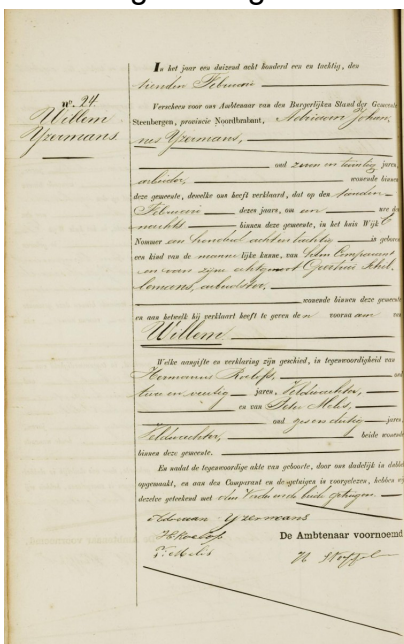 nº. 24.
Willem
Yzermans
In het jaar een duizend acht honderd een en tachtig, den
tienden Februari
Verscheen voor ons Ambtenaar van den Burgerlijken Stand der Gemeente
Steenbergen, provincie Noordbrabant, Adriaan Johan-
nes Yzermans,
oud zeven en twintig jaren,
arbeider, wonende binnen
deze gemeente, dewelke ons heeft verklaard, dat op den
Februari dezes jaars, om een ure des
nachts binnen deze gemeente, in het huis Wijk C
Nommer een honderd acht en tachtig is geboren
een kind van de mannelijke kunne, van hem Comparant
en van zijne echtgenoot
arbeidster,
wonende binnen deze gemeente
en aan hetwelk hij verklaart heeft te geven den voornaam van
Willem
Welke aangifte en verklaring zijn geschied, in tegenwoordigheid van
Hermanus Roelofs, oud
twee en veertig jaren, Veldwachter,
en van Peter Melis,
oud zes en dertig jaren,
Veldwachter, beide wonende
binnen deze gemeente.
En nadat de tegenwoordige akte van geboorte, door ons dadelijk in dubbel
opgemaakt, en aan den Comparant en de getuigen is voorgelezen, hebben zij
dezelve geteekend met ons Vader en de beide getuigen.
Adriaan Yzermans
H Roelofs
P. Melis
De Ambtenaar voornoemd